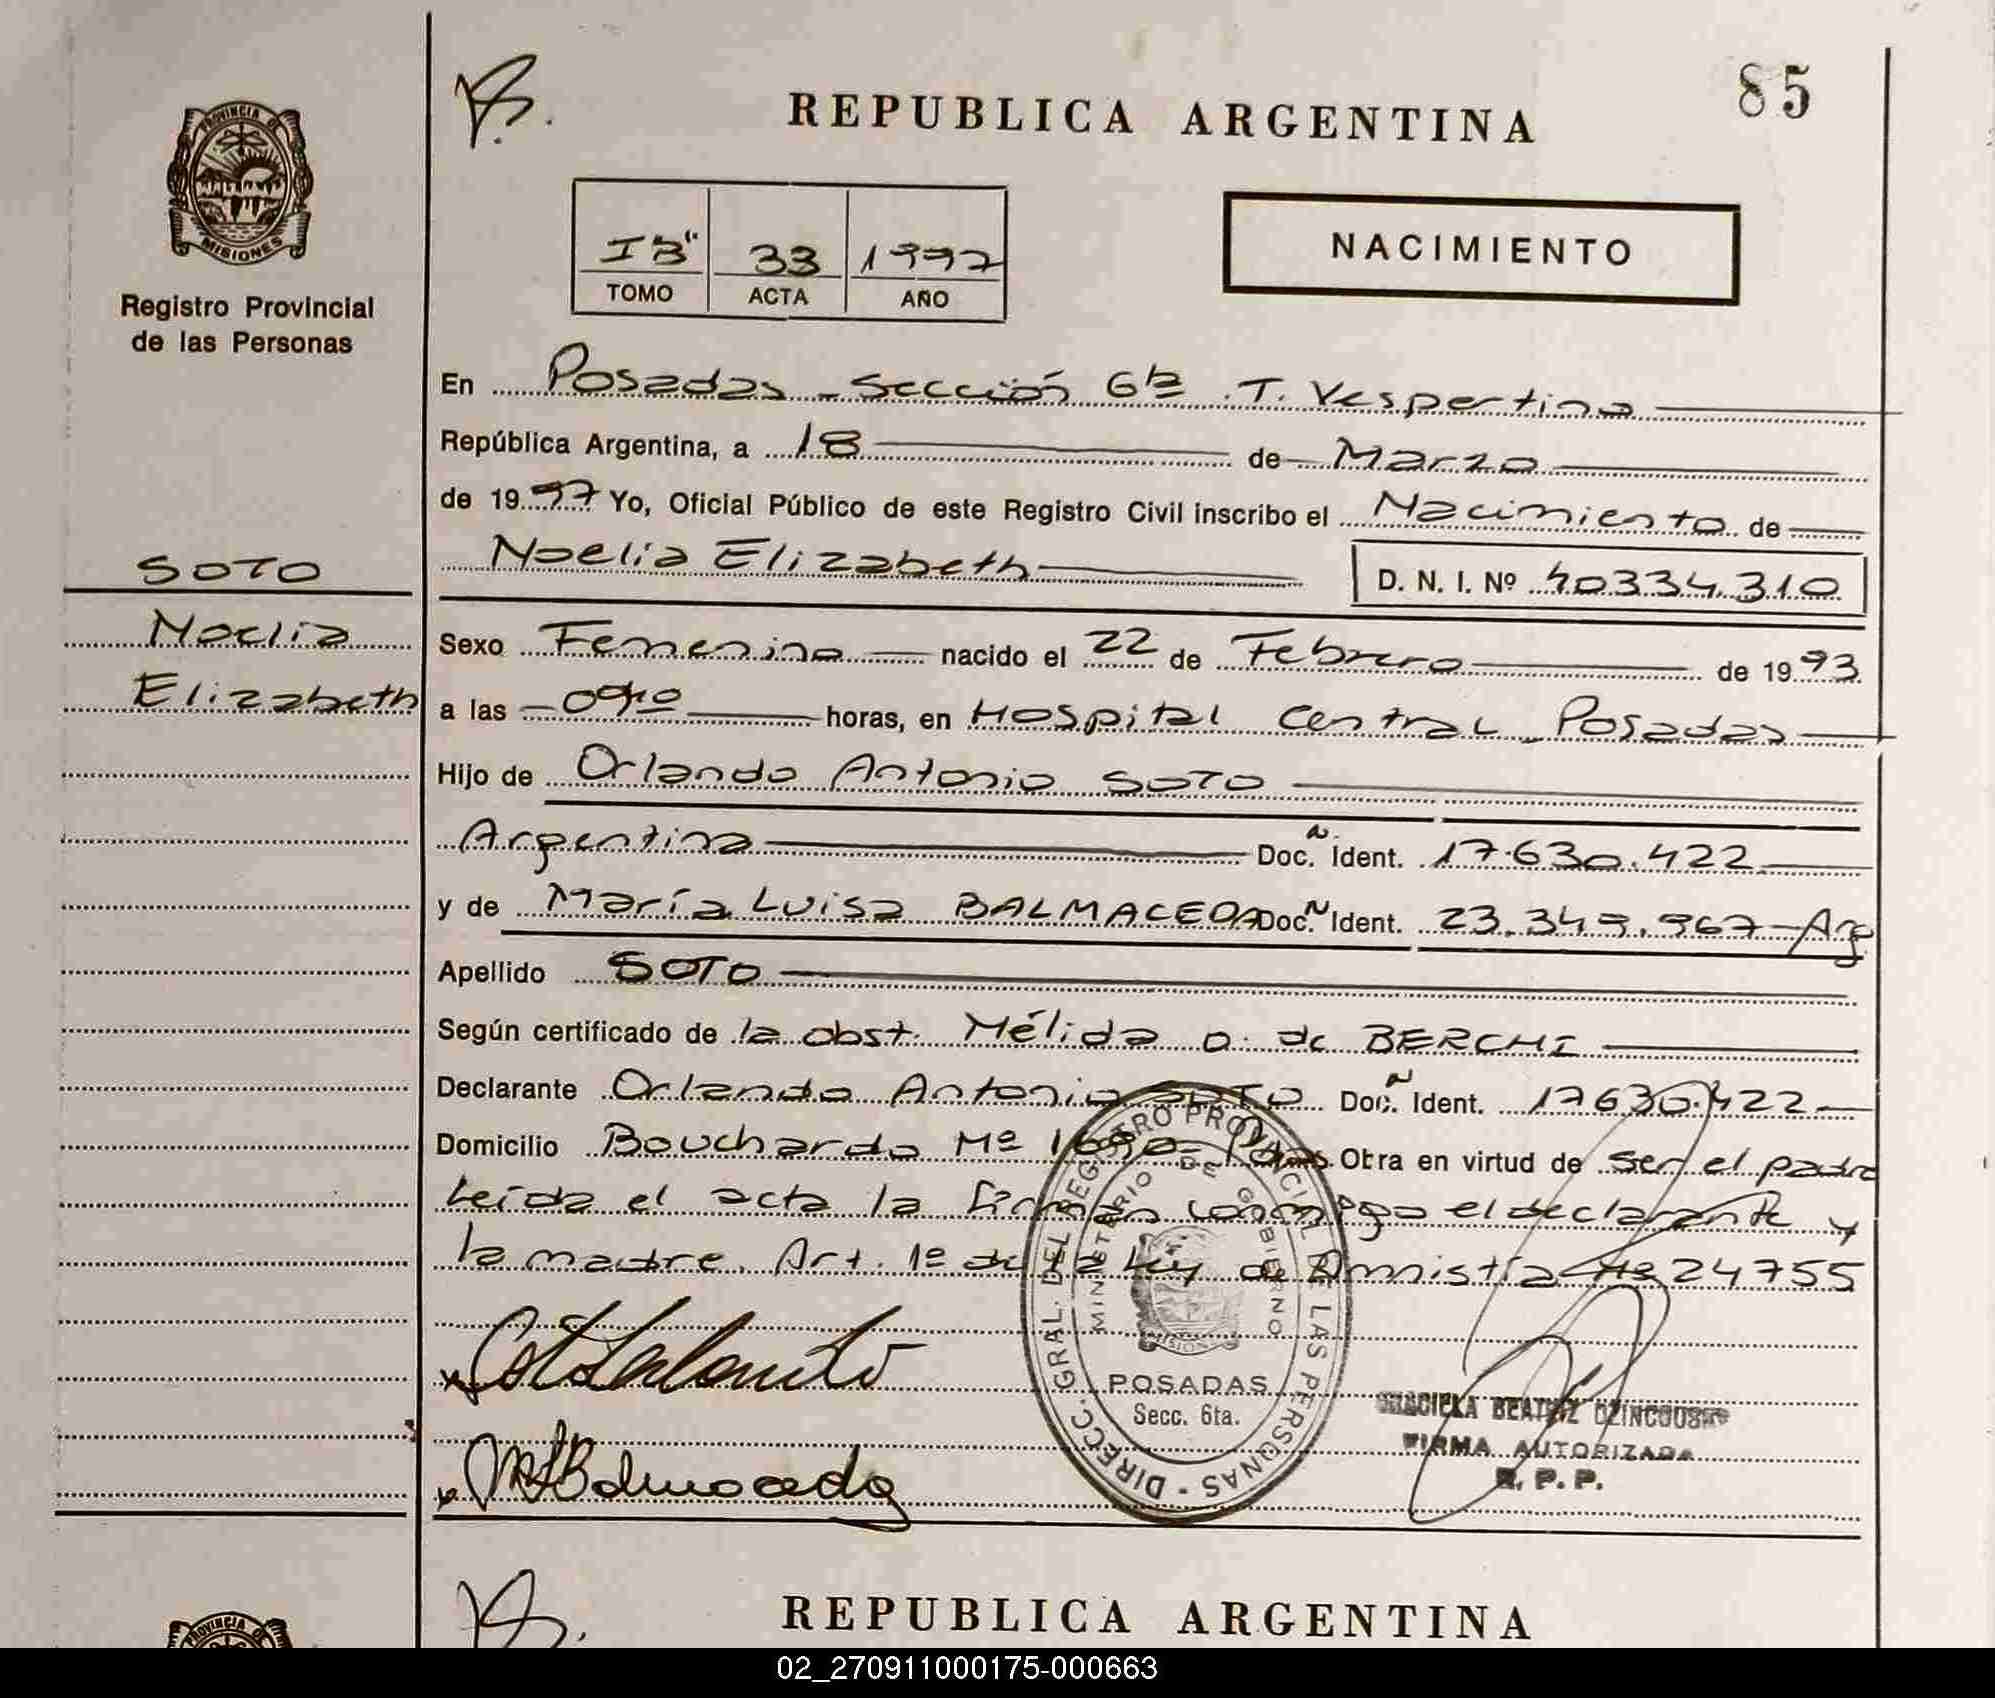 85
REPUBLICA ARGENTINA
PROVINCIA DE
MISIONES
Registro Provincial
de las Personas
IB" 33 1997
TOMO ACTA AÑO
NACIMIENTO
En Posadas - Sección 6ta T. Vespertino
República Argentina, a 18 de Marzo
de 1997 Yo, Oficial Público de este Registro Civil inscribo el Nacimiento de
Noelia Elizabeth D. N. I. Nº 40334.310
SOTO
Noelia
Elizabeth
Sexo Femenino nacido el 22 de Febrero de 1993
a las 09,10 horas, en Hospital Central Posadas
Hijo de Orlando Antonio SOTO
Argentina Doc. Ident. 17.630.422
y de María Luisa BALMACEDA Doc. Ident. 23.349.967 - Arg
Apellido SOTO
Según certificado de la obst. Nélida O. de BERCHI
Declarante Orlando Antonio SOTO Doc. Ident. 17630.422
Domicilio Bouchardo Nº 1690 - Obra en virtud de ser el padre
Leída el acta la firman conmigo el declarante y
la madre. Art. 1º de la Ley de Amnistía Nº 24755
DIRECC. GRAL. DEL REGISTRO PROVINCIAL DE LAS PERSONAS
MINISTERIO DE GOBIERNO
MISIONES
POSADAS
Secc. 6ta.
GRACIELA BEATRIZ
FIRMA AUTORIZADA
R. P. P.
REPUBLICA ARGENTINA
PROVINCIA DE
02_270911000175-000663